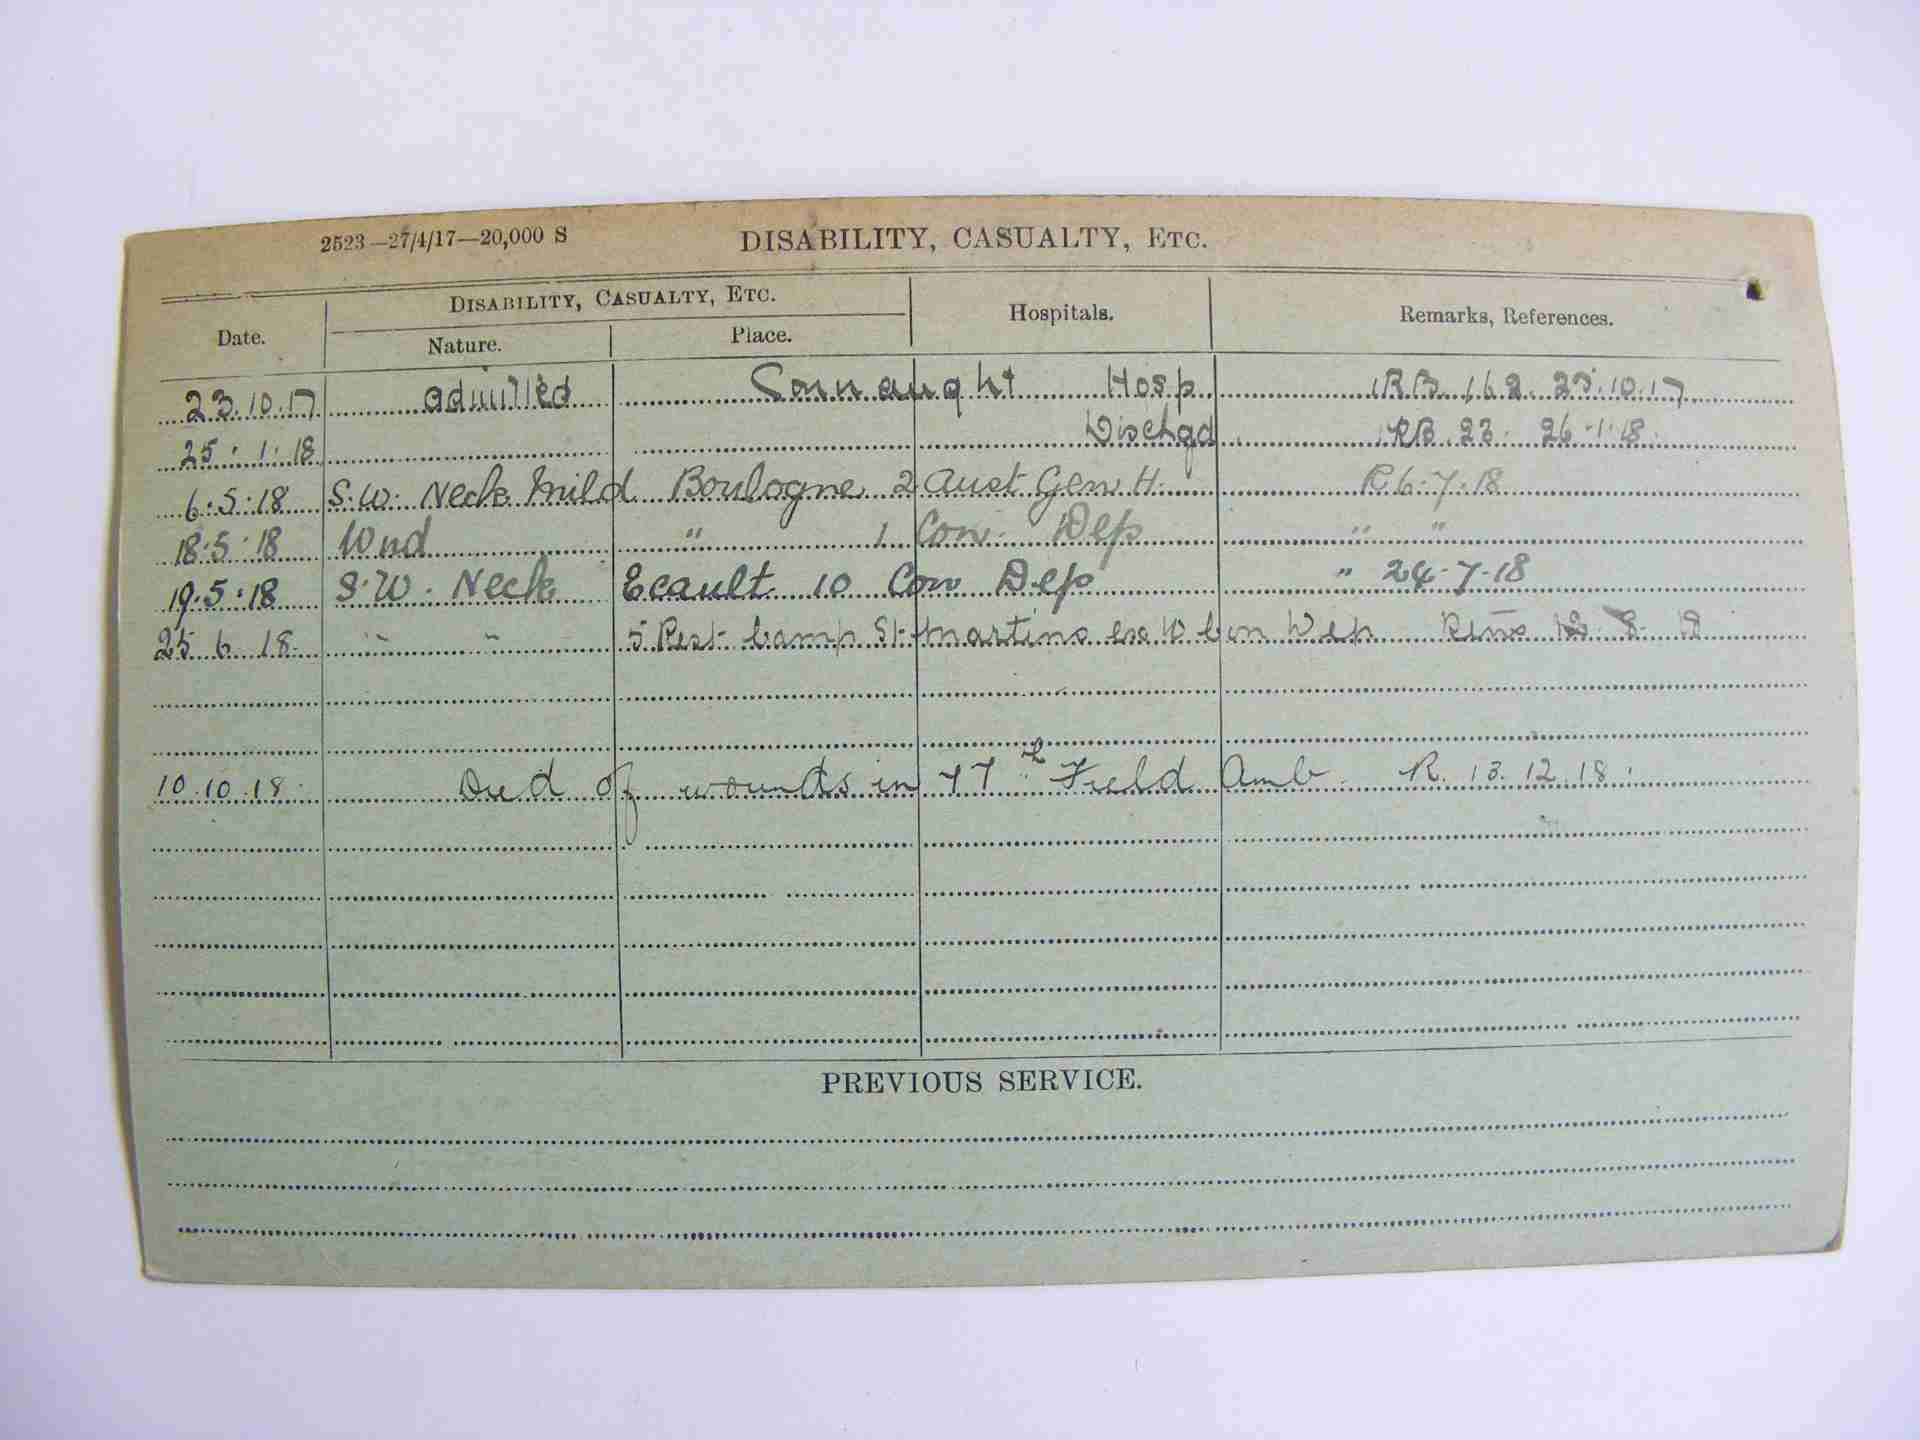 2523—27/4/17—20,000 S DISABILITY, CASUALTY, ETC.
Date. DISABILITY, CASUALTY, ETC. Hospitals. Remarks, References.
Nature. Place.
23.10.17 admitted Connaught Hosp. RB 162. 25.10.17
25.1.18 Dischgd RB 23. 26.1.18.
6.5.18 S.W. Neck Mild Boulogne 2 Aust Gen H. R 6.7.18
18.5.18 Wnd " 1 Con. Dep " "
19.5.18 S.W. Neck Ecault 10 Con Dep " 24.7.18
25 6 18. " " 5 Rest Camp St. Martins ex 10 Con Dep 8. 18
10.10.18. Died of wounds in 77th Field Amb. R. 13.12.18.
PREVIOUS SERVICE.